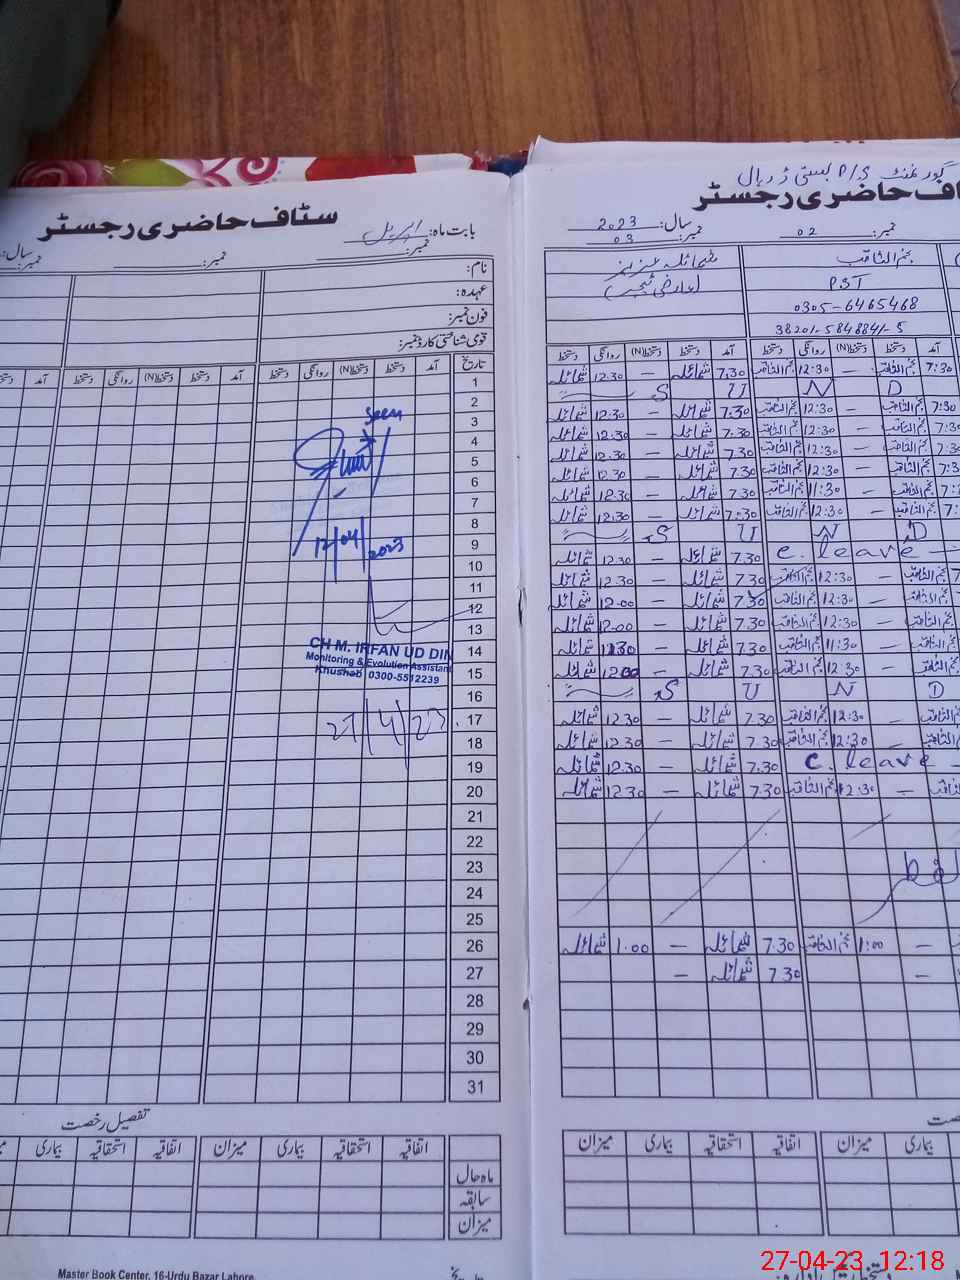 گورنمنٹ P/S بستی ڈربال
سٹاف حاضری رجسٹر
بابت ماہ: اپریل
سال:
نمبر:
نمبر:
نمبر:
نام:
عہدہ:
فون نمبر:
قومی شناختی کارڈ نمبر:
تاریخ آمد دستخط دستخط(N) روانگی دستخط آمد دستخط دستخط(N) روانگی دستخط آمد
1
2
3
4
5
6
7
8
9
10
11
12
13
14
15
16
17
18
19
20
21
22
23
24
25
26
27
28
29
30
31
Seen
12/04/2023
CH M. IRFAN UD DIN
Monitoring & Evolution Assistant
Khushab 0300-5512239
27/4/23
تفصیل رخصت
اتفاقیہ استحقاقیہ بیماری میزان اتفاقیہ استحقاقیہ بیماری
ماہ حال
سابقہ
میزان
Master Book Center, 16-Urdu Bazar Lahore
حاضری رجسٹر
سال: 2023
نمبر: 02
نمبر: 03
نجم الثاقب شمائلہ عزیز
PST (عارضی ٹیچر)
0305-6465468
38201-5848841-5
آمد دستخط دستخط(N) روانگی دستخط آمد دستخط دستخط(N) روانگی دستخط
7:30 نجم الثاقب — 12:30 نجم الثاقب 7.30 شمائلہ — 12.30 شمائلہ
S U N D
7:30 نجم الثاقب — 12:30 نجم الثاقب 7.30 شمائلہ — 12.30 شمائلہ
نجم الثاقب — 12:30 نجم الثاقب 7.30 شمائلہ — 12.30 شمائلہ
نجم الثاقب — 12:30 نجم الثاقب 7.30 شمائلہ — 12.30 شمائلہ
نجم الثاقب — 12:30 نجم الثاقب 7.30 شمائلہ — 12.30 شمائلہ
نجم الثاقب — 11:30 نجم الثاقب 7.30 شمائلہ — 12.30 شمائلہ
نجم الثاقب — 12:30 نجم الثاقب 7.30 شمائلہ — 12.30 شمائلہ
S U N D
c. leave — 7.30 شمائلہ — 12.30 شمائلہ
نجم الثاقب — 12:30 نجم الثاقب 7.30 شمائلہ — 12.30 شمائلہ
نجم الثاقب — 12:30 نجم الثاقب 7.30 شمائلہ — 12.00 شمائلہ
نجم الثاقب — 12:30 نجم الثاقب 7.30 شمائلہ — 12.00 شمائلہ
نجم الثاقب — 11:30 نجم الثاقب 7.30 شمائلہ — 11.30 شمائلہ
نجم الثاقب — 12:30 نجم الثاقب 7.30 شمائلہ — 12.00 شمائلہ
S U N D
نجم الثاقب — 12:30 نجم الثاقب 7.30 شمائلہ — 12.30 شمائلہ
نجم الثاقب — 12:30 نجم الثاقب 7.30 شمائلہ — 12.30 شمائلہ
C. leave — 7.30 شمائلہ — 12.30 شمائلہ
— 12:30 نجم الثاقب 7.30 شمائلہ — 12.30 شمائلہ
— 1:00 نجم الثاقب 7.30 شمائلہ — 1.00 شمائلہ
— 7.30 شمائلہ —
بیماری میزان اتفاقیہ استحقاقیہ بیماری میزان
27-04-23 12:18